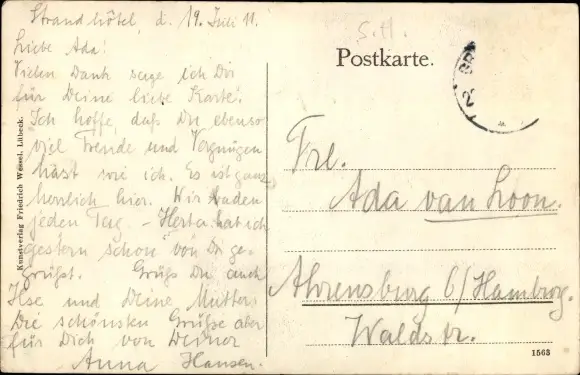 Strandhôtel, d. 19. Juli 11.
Liebe Ada!
Vielen Dank sage ich Dir
für Deine liebe Karte.
Ich hoffe, daß Du ebenso
viel Freude und Vergnügen
hast wie ich. Es ist ganz
herrlich hier. Wir baden
jeden Tag. – Herta hat ich
gestern schon von Dir ge-
grüßt. Grüße Du auch
Ilse und Deine Mutter.
Die schönsten Grüße aber
für Dich von Deiner
Anna Hansen.
Kunstverlag Friedrich Wessel, Lübeck.
S.H.
Postkarte.
Frl.
Ada van Loon.
Ahrensburg b/Hamburg.
Waldstr.
1563